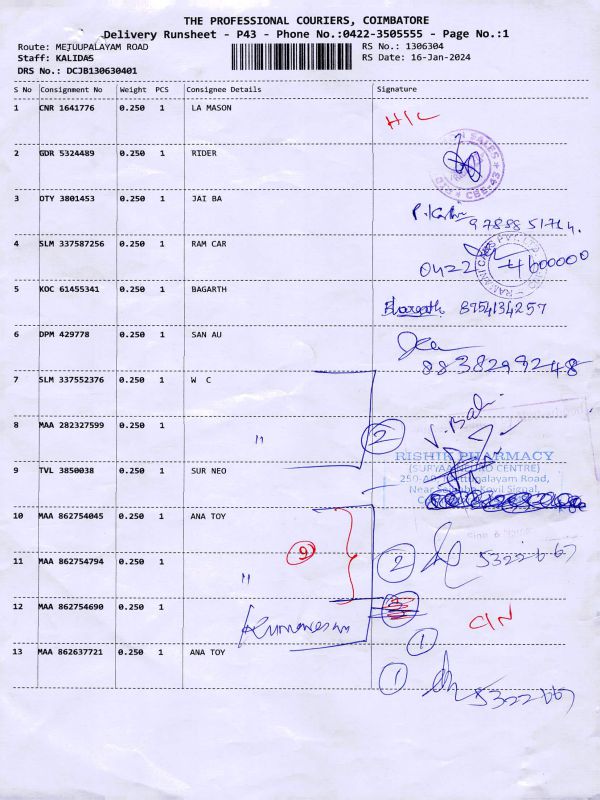 THE PROFESSIONAL COURIERS, COIMBATORE
Delivery Runsheet - P43 - Phone No.:0422-3505555 - Page No.:1
Route: METUUPALAYAM ROAD RS No.: 1306304
Staff: KALIDAS RS Date: 16-Jan-2024
DRS No.: DCJB130630401
S No Consignment No Weight PCS Consignee Details Signature
1 CNR 1641776 0.250 1 LA MASON
2 GDR 5324489 0.250 1 RIDER
SALES
CBE-43
3 OTY 3801453 0.250 1 JAI BA
4 SLM 337587256 0.250 1 RAM CAR
0422 4600000
5 KOC 61455341 0.250 1 BAGARTH
Bhargath 8754134257
6 DPM 429778 0.250 1 SAN AU
8838299248
7 SLM 337552376 0.250 1 W C
8 MAA 282327599 0.250 1 " 2
V. Bal
RISHIK PHARMACY
9 TVL 3850038 0.250 1 SUR NEO
10 MAA 862754045 0.250 1 ANA TOY
9
11 MAA 862754794 0.250 1 " 2
12 MAA 862754690 0.250 1
1
13 MAA 862637721 0.250 1 ANA TOY
1